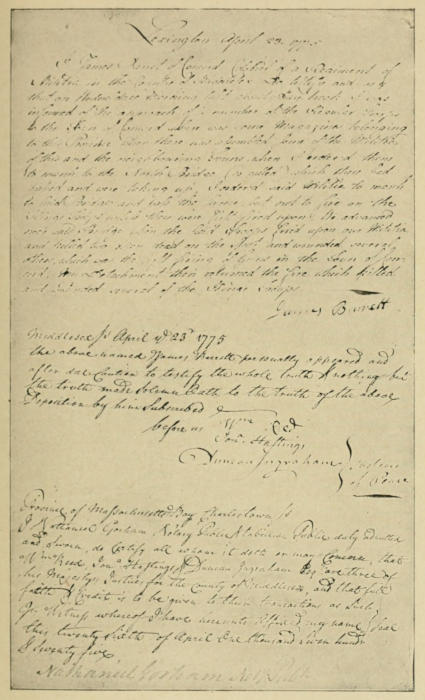 Lexington April 23. 1775
I James Barrett of Concord Colonel of a Regiment of
Militia in the County of Middlesex do testify and say
that on Wednesday Morning last about Day break I was
informed of the approach of a number of the Regular Troops
to the Town of Concord where was some Magazines belonging
to this Province when there was assembled some of the Militia
of this and the neighbouring Towns when I ordered them
to march to the North Bridge (so called) which they had
passed and were taking up, I ordered said Militia to march
to said Bridge and pass the same but not to fire on the
Kings Troops unless they were first fired upon. We advanced
near said Bridge when the said Troops fired upon our Militia
and killed two men dead on the Spot and wounded several
others, which was the first firing of Guns in the Town of Con
cord. Our Detachment then returned the fire which killed
and wounded several of the Kings Troops.
James Barrett
Middlesex Ss April ye 23d 1775
The above named James Barrett personally appeared and
after due Caution to testify the whole truth & nothing but
the truth made solemn Oath to the truth of the above
Deposition by him Subscribed
before us Wm Reed
Jona Hastings
Duncan Ingraham
Justices
of Peace
Province of Massachusetts Bay Charlestown Ss
I Nathaniel Gorham, Notary Publick Public duly admitted
and Sworn, do Certify all whom it doth or may Concern, that
Wm Reed, Jona Hastings, & Duncan Ingraham Esqrs are three of
his Majestys Justices for the County of Middlesex, and that full
faith & Credit is to be given to their transactions as Such,
In Witness whereof I have hereunto affixd my name & Seal
this twenty Sixth of April One thousand Seven hundd
& Seventy five
Nathaniel Gorham Noty Publk